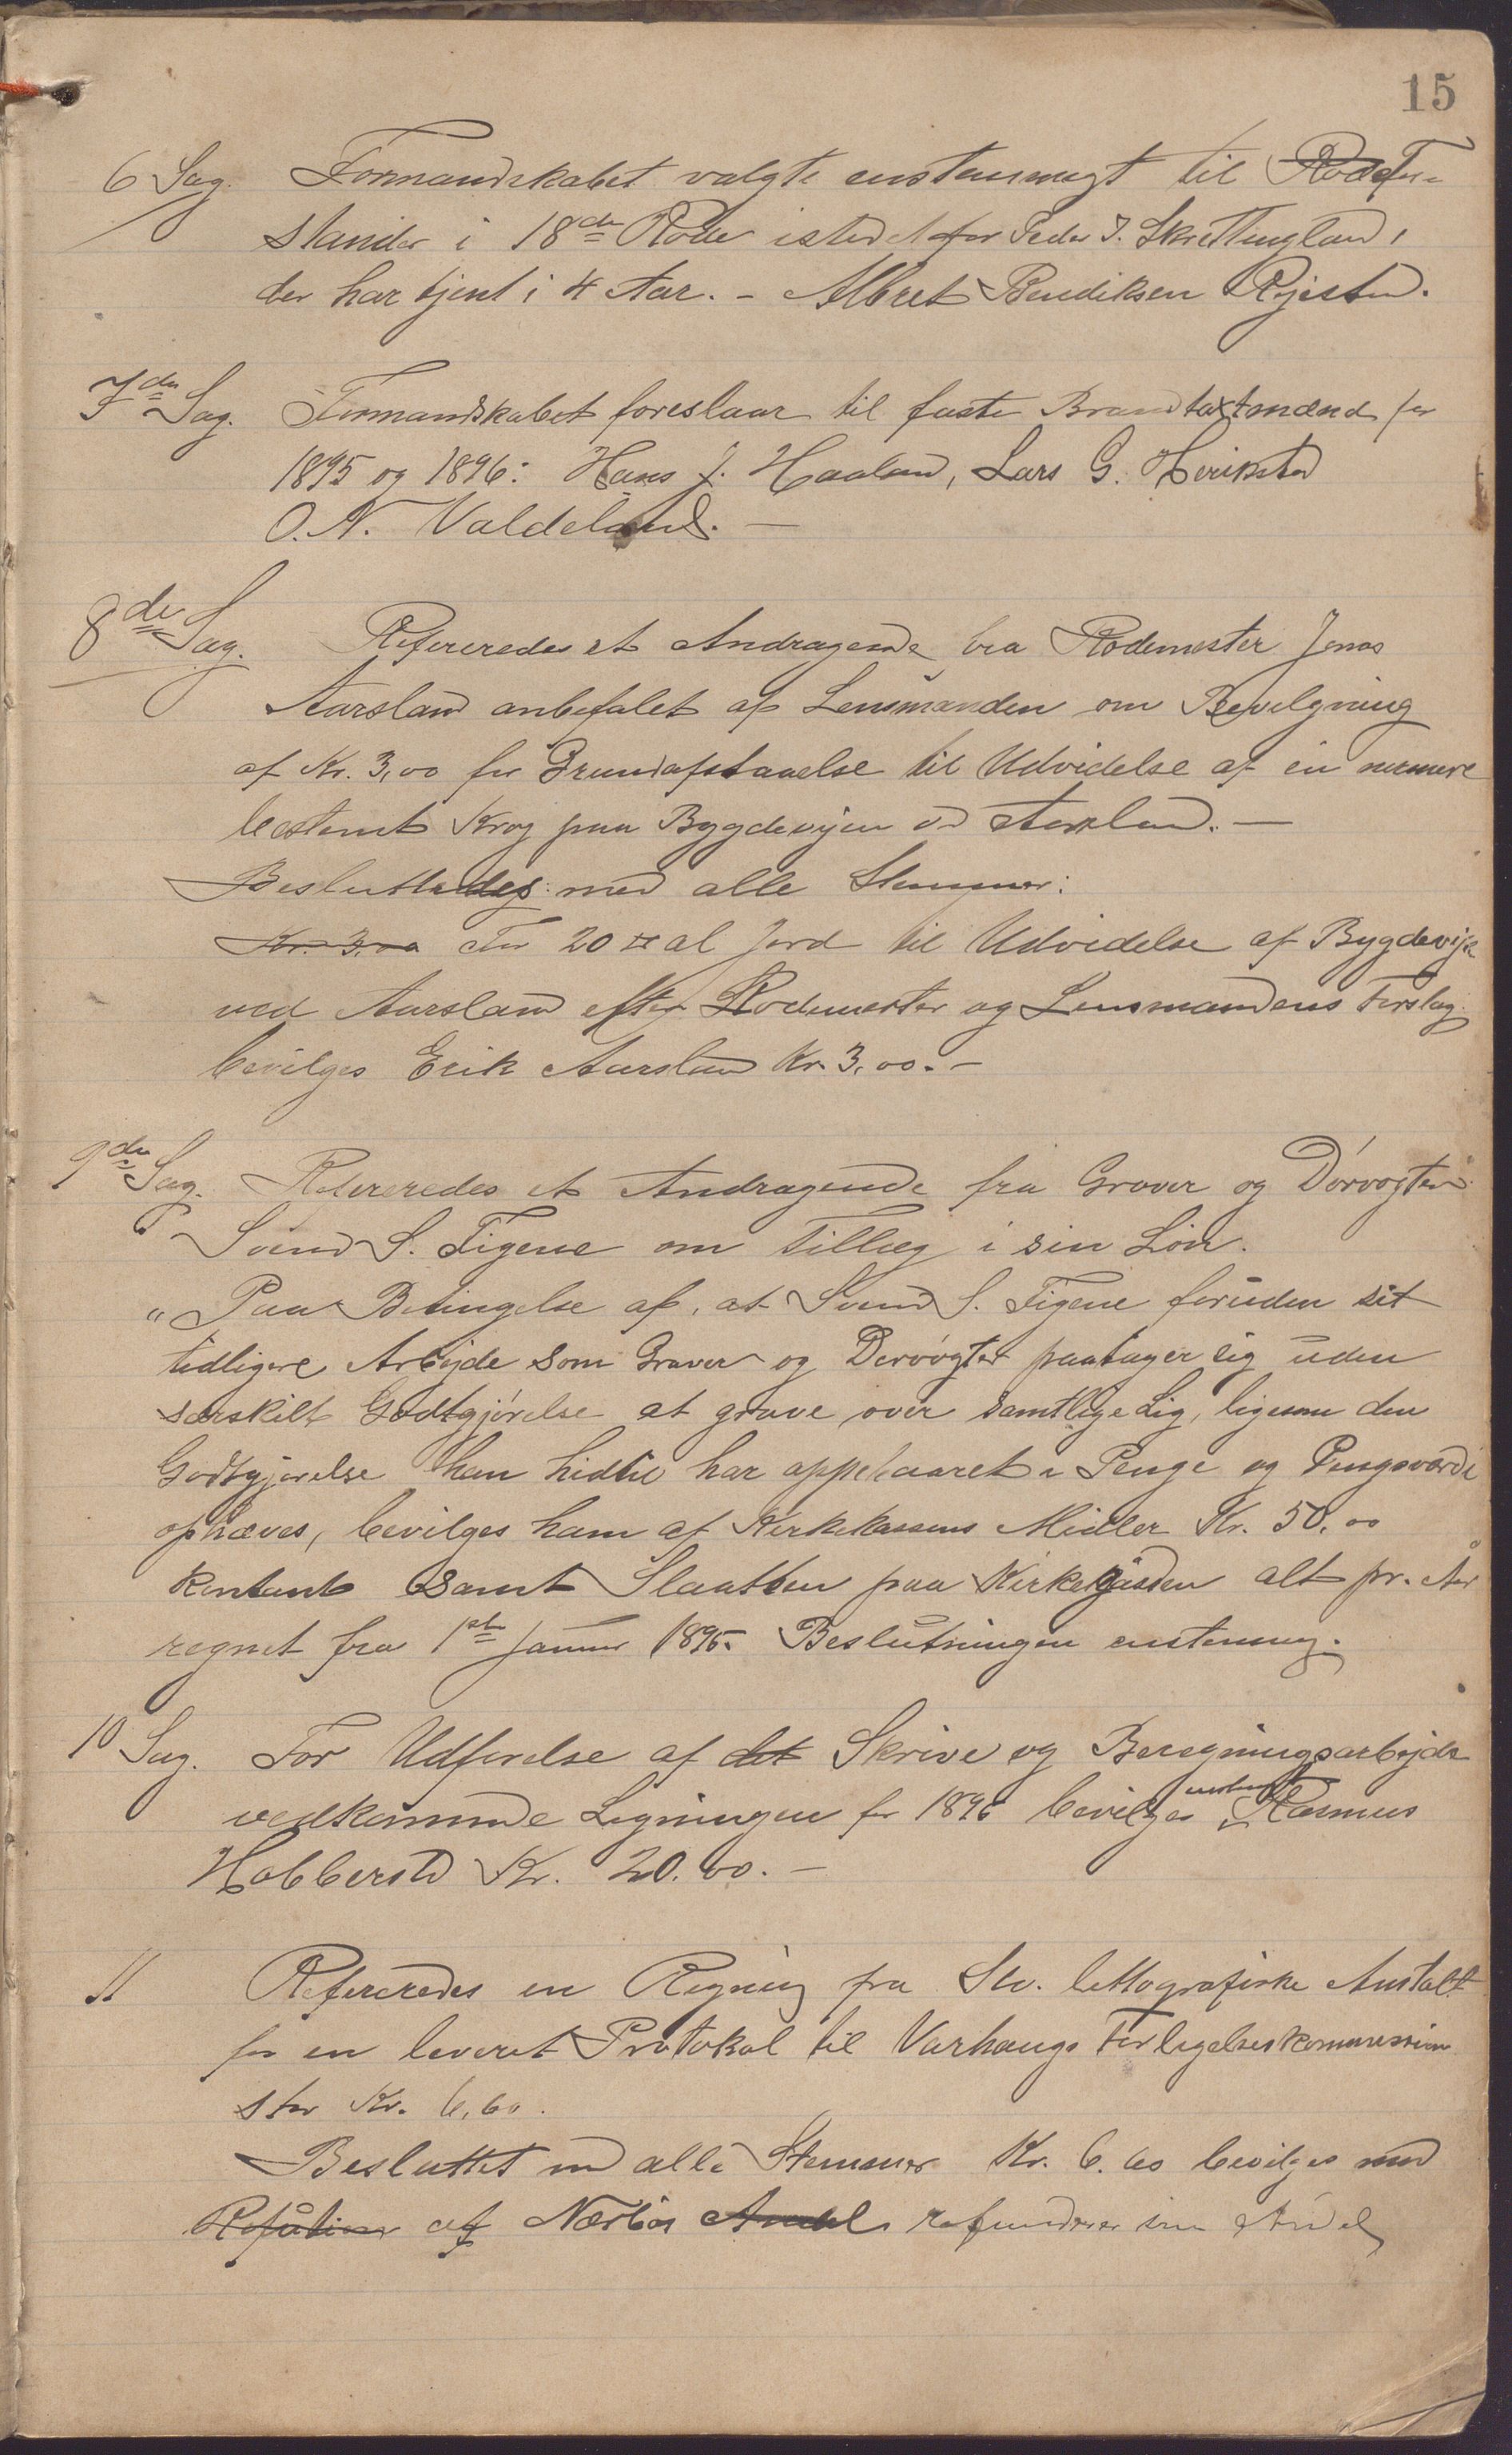 15
6 Sag. Formandskabet valgte enstemmigt til Rode For-
stander i 18de Rode istedetfor Peder J. Skrettingland,
der har tjent i 4 Aar. - Albret Bendiksen Rjestad.
7de Sag. Formandskabet foreslaar til faste Brandtaxtmænd for
1895 og 1896: Hans J. Haaland, Lars G. Herikstad
O. N. Valdeland. —
8de Sag. Refereredes et Andragende fra Rodemester Jonas
Aarsland anbefalet af Lensmanden om Bevilgning
af Kr. 3,00 for Grundafstaaelse til Udvidelse af en nærmere
bestemt Krog paa Bygdevejen ved Aarsland. —
Besluttedes: med alle Stemmer:
Kr. 3,00 For 20 □ al Jord til Udvidelse af Bygdevej
ved Aarsland efter Rodemester og Lensmandens Forslag
bevilges Erik Aarsland Kr. 3,00. -
9de Sag. Refereredes et Andragende fra Graver og Dørvogter
Svend S. Tigene om Tillæg i sin Løn.
„Paa Betingelse af, at Svend S. Tigene foruden sit
tidligere Arbejde som Graver og Dørvogter paatager sig uden
særskilt Godtgjørelse at grave over samtlige Lig, ligesom den
Godtgjørelse han hidtil har oppebaaret i Penge og Pengeværdi
ophæves, bevilges ham af Kirkekassens Midler Kr. 50,00
kontant samt Slaatten paa Kirkegaarden alt pr. Aar
regnet fra 1ste Januar 1895. Beslutningen enstemmig.
10 Sag. For Udførelse af det Skrive og Beregningsarbejde
vedkommende Ligningen for 1896 bevilges enstemmigt Rasmus
Hobberstd Kr. 20.00. —
11 Refereredes en Regning fra Stv. lithografiske Anstalt
for en leveret Protokol til Varhaugs Forligelseskommission
stor Kr. 6,60.
Besluttet med alle Stemmer Kr. 6.60 bevilges mod
af Nærbø Andel refunderer sin Andel